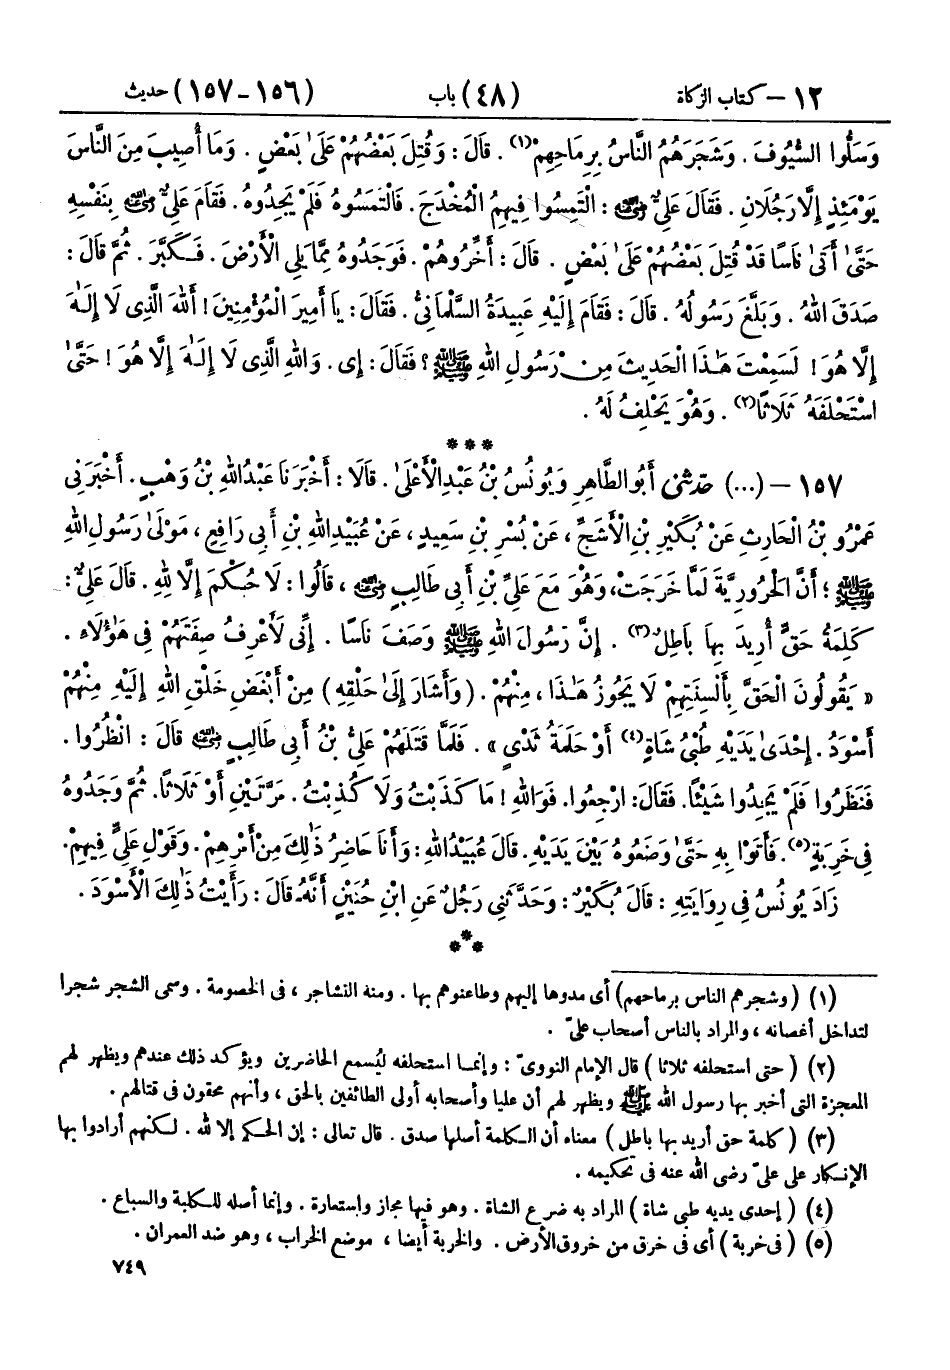 ١٢ – كتاب الزكاة (٤٨) باب (١٥٦-١٥٧) حديث
وَسَلُّوا السُّيُوفَ . وَشَجَرَهُمُ النَّاسُ بِرِمَاحِهِمْ(١) . قَالَ : وَقُتِلَ بَعْضُهُمْ عَلَىٰ بَعْضٍ . وَمَا أُصِيبَ مِنَ النَّاسِ
يَوْمَئِذٍ إِلَّا رَجُلَانِ . فَقَالَ عَلِيٌّ رضي الله عنه : الْتَمِسُوا فِيهِمُ الْمُخْدَجَ . فَالْتَمَسُوهُ فَلَمْ يَجِدُوهُ . فَقَامَ عَلِيٌّ رضي الله عنه بِنَفْسِهِ
حَتَّىٰ أَتَىٰ نَاسًا قَدْ قُتِلَ بَعْضُهُمْ عَلَىٰ بَعْضٍ . قَالَ : أَخِّرُوهُمْ . فَوَجَدُوهُ مِمَّا يَلِي الْأَرْضَ . فَكَبَّرَ . ثُمَّ قَالَ :
صَدَقَ اللهُ . وَبَلَّغَ رَسُولُهُ . قَالَ : فَقَامَ إِلَيْهِ عَبِيدَةُ السَّلْمَانِيُّ . فَقَالَ : يَا أَمِيرَ الْمُؤْمِنِينَ ! أَللهَ الَّذِى لَا إِلَـٰهَ
إِلَّا هُوَ ! لَسَمِعْتَ هَـٰذَا الْحَدِيثَ مِنْ رَسُولِ اللهِ ﷺ ؟ فَقَالَ : إِى . وَاللهِ الَّذِى لَا إِلَـٰهَ إِلَّا هُوَ ! حَتَّىٰ
اسْتَحْلَفَهُ ثَلَاثًا(٢) . وَهُوَ يَحْلِفُ لَهُ .
***
١٥٧ – (...) حَدَّثَنِى أَبُو الطَّاهِرِ وَيُونُسُ بْنُ عَبْدِ الْأَعْلَىٰ . قَالَا : أَخْبَرَنَا عَبْدُ اللهِ بْنُ وَهْبٍ . أَخْبَرَنِى
عَمْرُو بْنُ الْحَارِثِ عَنْ بُكَيْرِ بْنِ الْأَشَجِّ ، عَنْ بُسْرِ بْنِ سَعِيدٍ ، عَنْ عُبَيْدِ اللهِ بْنِ أَبِى رَافِعٍ ، مَوْلَىٰ رَسُولِ اللهِ
ﷺ ؛ أَنَّ الْحَرُورِيَّةَ لَمَّا خَرَجَتْ، وَهُوَ مَعَ عَلِيِّ بْنِ أَبِى طَالِبٍ رضي الله عنه ، قَالُوا : لَا حُكْمَ إِلَّا لِلهِ . قَالَ عَلِيٌّ :
كَلِمَةُ حَقٍّ أُرِيدَ بِهَا بَاطِلٌ(٣) . إِنَّ رَسُولَ اللهِ ﷺ وَصَفَ نَاسًا . إِنِّى لَأَعْرِفُ صِفَتَهُمْ فِى هَـٰؤُلَاءِ .
« يَقُولُونَ الْحَقَّ بِأَلْسِنَتِهِمْ لَا يَجُوزُ هَـٰذَا ، مِنْهُمْ . (وَأَشَارَ إِلَىٰ حَلْقِهِ) مِنْ أَبْغَضِ خَلْقِ اللهِ إِلَيْهِ مِنْهُمْ
أَسْوَدُ . إِحْدَىٰ يَدَيْهِ طُبْىُ شَاةٍ(٤) أَوْ حَلَمَةُ ثَدْىٍ » . فَلَمَّا قَتَلَهُمْ عَلِيُّ بْنُ أَبِى طَالِبٍ رضي الله عنه قَالَ : انْظُرُوا .
فَنَظَرُوا فَلَمْ يَجِدُوا شَيْئًا. فَقَالَ: ارْجِعُوا. فَوَاللهِ ! مَا كَذَبْتُ وَلَا كُذِبْتُ . مَرَّتَيْنِ أَوْ ثَلَاثًا. ثُمَّ وَجَدُوهُ
فِى خَرِبَةٍ(٥). فَأَتَوْا بِهِ حَتَّىٰ وَضَعُوهُ بَيْنَ يَدَيْهِ. قَالَ عُبَيْدُ اللهِ: وَأَنَا حَاضِرُ ذَٰلِكَ مِنْ أَمْرِهِمْ. وَقَوْلِ عَلِيٍّ فِيهِمْ.
زَادَ يُونُسُ فِى رِوَايَتِهِ : قَالَ بُكَيْرٌ : وَحَدَّثَنِى رَجُلٌ عَنِ ابْنِ حُنَيْنٍ أَنَّهُ قَالَ : رَأَيْتُ ذَٰلِكَ الْأَسْوَدَ .
***
(١) (وشجرهم الناس برماحهم) أى مدوها إليهم وطاعنوهم بها . ومنه التشاجر ، فى الخصومة . وسمى الشجر شجرا
لتداخل أغصانه ، والمراد بالناس أصحاب علىّ .
(٢) (حتى استحلفه ثلاثا) قال الإمام النووىّ : وإنما استحلفه ليُسمع الحاضرين ويؤكد ذلك عندهم ويظهر لهم
المعجزة التى أخبر بها رسول الله ﷺ ويظهر لهم أن عليا وأصحابه أولى الطائفين بالحق ، وأنهم محقون فى قتالهم .
(٣) (كلمة حق أريد بها باطل) معناه أن الكلمة أصلها صدق . قال تعالى : إن الحكم إلا لله . لكنهم أرادوا بها
الإنكار على علىّ رضى الله عنه فى تحكيمه .
(٤) (إحدى يديه طبى شاة) المراد به ضرع الشاة . وهو فيها مجاز واستعارة . وإنما أصله للكلبة والسباع .
(٥) (فى خربة) أى فى خرق من خروق الأرض . والخربة أيضا ، موضع الخراب ، وهو ضد العمران .
٧٤٩